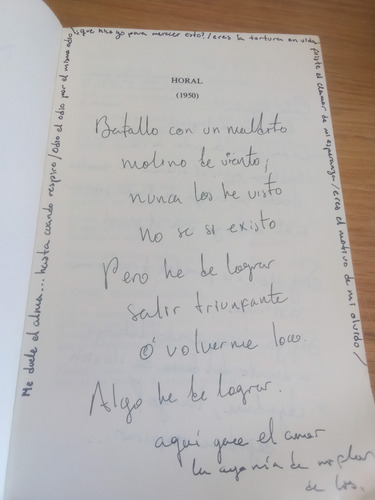 Me duele el alma... hasta cuando respiro / Odio el odio por el mismo odio
¿que hago para merecer esto? / eres la tortura en vida
el clamor de mi esperanza / eres el motivo de mi olvido /
HORAL
(1950)
Batallo con un maldito
molino de viento;
nunca los he visto
no se si existo
Pero he de lograr
salir triunfante
ó volverme loco.
Algo he de lograr.
aquí yace el amor
la agonía de
de los.